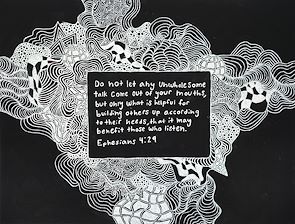 Do not let any unwholesome
talk come out of your mouths,
but only what is helpful for
building others up according
to their needs, that it may
benefit those who listen.
Ephesians 4:29